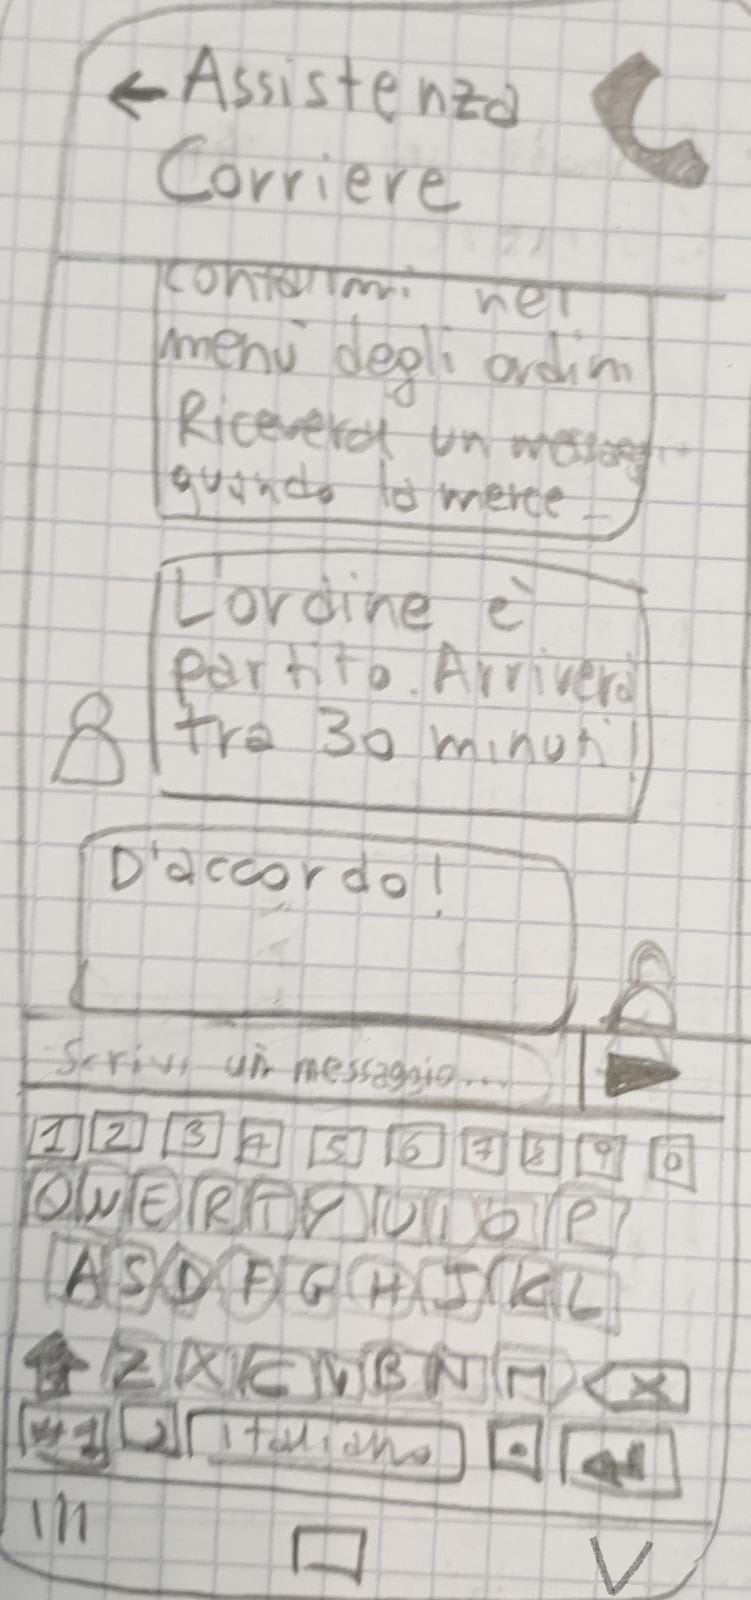 ← Assistenza
Corriere
contattami nel
menù degli ordini
Riceverai un messaggi
quando la merce
L'ordine è
partito. Arriverà
tra 30 minuti!
D'accordo!
Scrivi un messaggio...
1 2 3 4 5 6 7 8 9 0
Q W E R T Y U I O P
A S D F G H J K L
Z X C V B N M X
italiano .